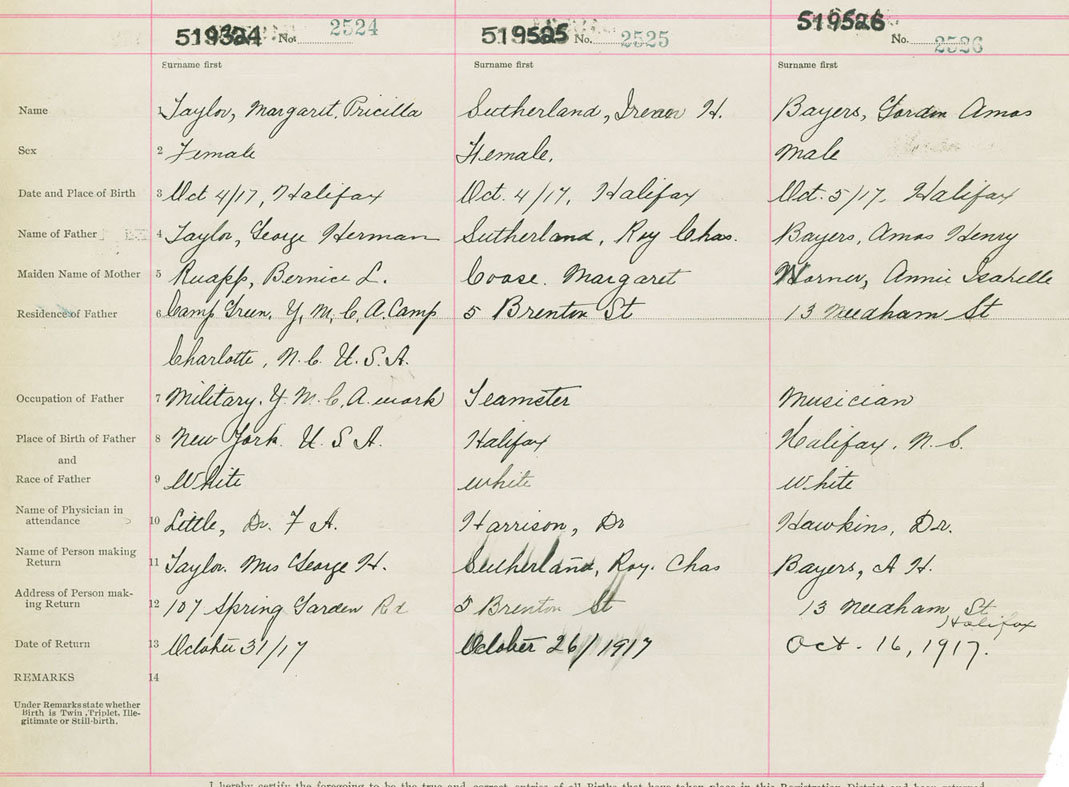 519524 No. 2524 519525 No. 2525 519526 No. 2526
Surname first Surname first Surname first
Name 1 Taylor, Margaret, Pricilla Sutherland, H. Bayers, Gordon Amos
Sex 2 Female Female. Male
Date and Place of Birth 3 Oct 4/17, Halifax Oct. 4/17, Halifax Oct. 5/17, Halifax
Name of Father 4 Taylor, George Herman Sutherland, Roy Chas. Bayers, Amos Henry
Maiden Name of Mother 5 Bernice L. Margaret Annie Isabelle
Residence of Father 6 Camp Green, Y, M, C, A. Camp 5 Brenton St 13 Needham St
Charlotte, N.C. U.S.A.
Occupation of Father 7 Military. Y.M.C.A. work Teamster Musician
Place of Birth of Father 8 New York. U.S.A. Halifax Halifax, N.S.
and
Race of Father 9 White white White
Name of Physician in
attendance 10 Little, Dr. F A. Harrison, Dr Hawkins, Dr.
Name of Person making
Return 11 Taylor. Mrs George H. Sutherland, Roy. Chas Bayers, A H.
Address of Person mak-
ing Return 12 107 Spring Garden Rd 5 Brenton St 13 Needham St
Halifax
Date of Return 13 October 31/17 October 26/1917 Oct. 16, 1917.
REMARKS 14
Under Remarks state whether
Birth is Twin, Triplet, Ille-
gitimate or Still-birth.
I hereby certify the foregoing to be the true and correct entries of all Births that have taken place in this Registration District and been returned